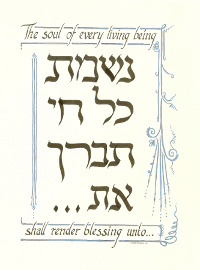 The soul of every living being
נשמת
כל חי
תברך
את...
shall render blessing unto...